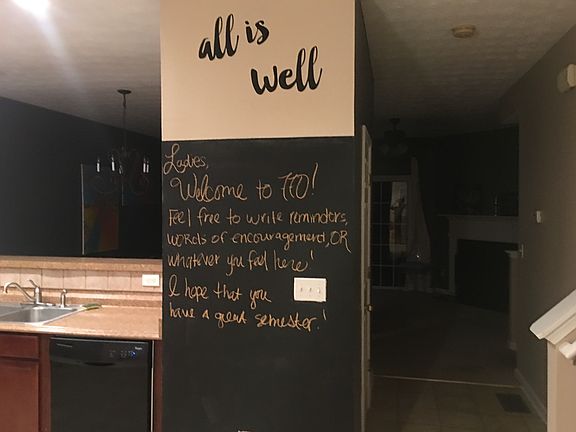 all is
well
Ladies,
Welcome to TTO!
Feel free to write reminders,
words of encouragement, OR
whatever you feel here!
I hope that you
have a great semester!